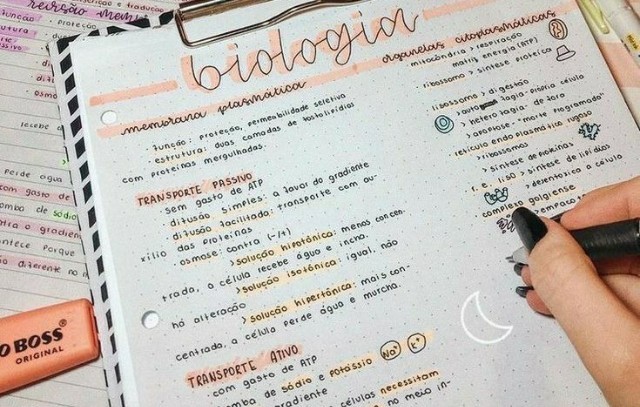 biologia
membrana plasmática
função: proteção, permeabilidade seletiva
estrutura: duas camadas de fosfolipídios
com proteínas mergulhadas.
TRANSPORTE PASSIVO
sem gasto de ATP
difusão simples: a favor do gradiente
difusão facilitada: transporte com au-
xílio das proteínas
osmose: contra (-/+)
>solução hipotônica: menos concen-
trada, a célula recebe água e incha.
>solução isotônica: igual, não
há alteração
>solução hipertônica: mais con-
centrada, a célula perde água e murcha.
TRANSPORTE ATIVO
com gasto de ATP
bomba de sódio e potássio Na+ K+
gradiente
células necessitam
no meio in-
organelas citoplasmáticas
mitocôndria > respiração
matriz energia (ATP)
ribossomo > síntese proteica
lisossomo > digestão
fagia-própria célula
> heterofagia- de fora
> apoptose - "morte programada"
retículo endoplasmático rugoso
>ribossomos
> síntese de proteínas
r. e. liso > síntese de lipídios
> desentoxica o célula
complexo golgiense
revisão mem
função
proteção
recebe
perde água
com gasto de
bomba de sódio
contra o gradien
acontece porque
diferente no
O BOSS®
ORIGINAL